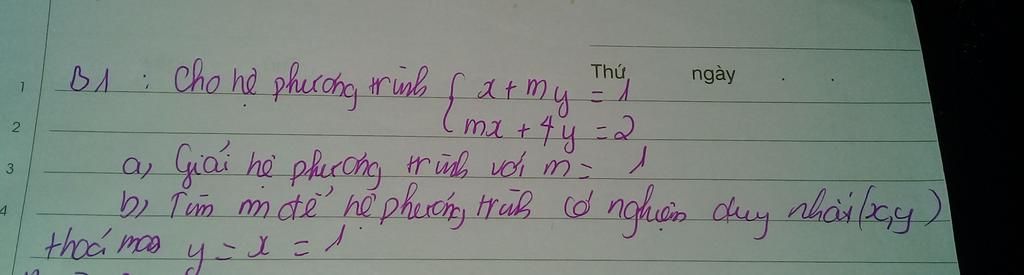 Thứ ngày . .
B1 : Cho hệ phương trình { x + my = 1
mx + 4y = 2
a, Giải hệ phương trình với m = 1
b, Tìm m để hệ phương trình có nghiệm duy nhất (x,y)
thoả mãn y = x = 1
1
2
3
4